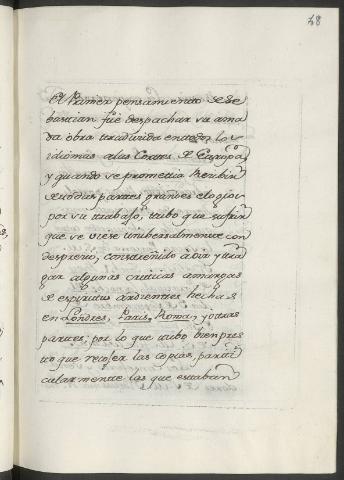 48
El Primer pensamiento de Se
bastian fué despachar su ama
da obra traducida en todos los
idiomas a las Cortes de Europa,
y quando se prometia Recibir
de todas partes grandes elogios
por su trabajo, tubo que sufrir
que se viese unibersalmente con
desprecio, constreñido á oir y tra
gar algunas criticas amargas
de espiritus ardientes hechas
en Londres, Paris, Roma, y otras
partes; por lo que tubo bien pres
to que recojer las copias, parti
cularmente las que estaban